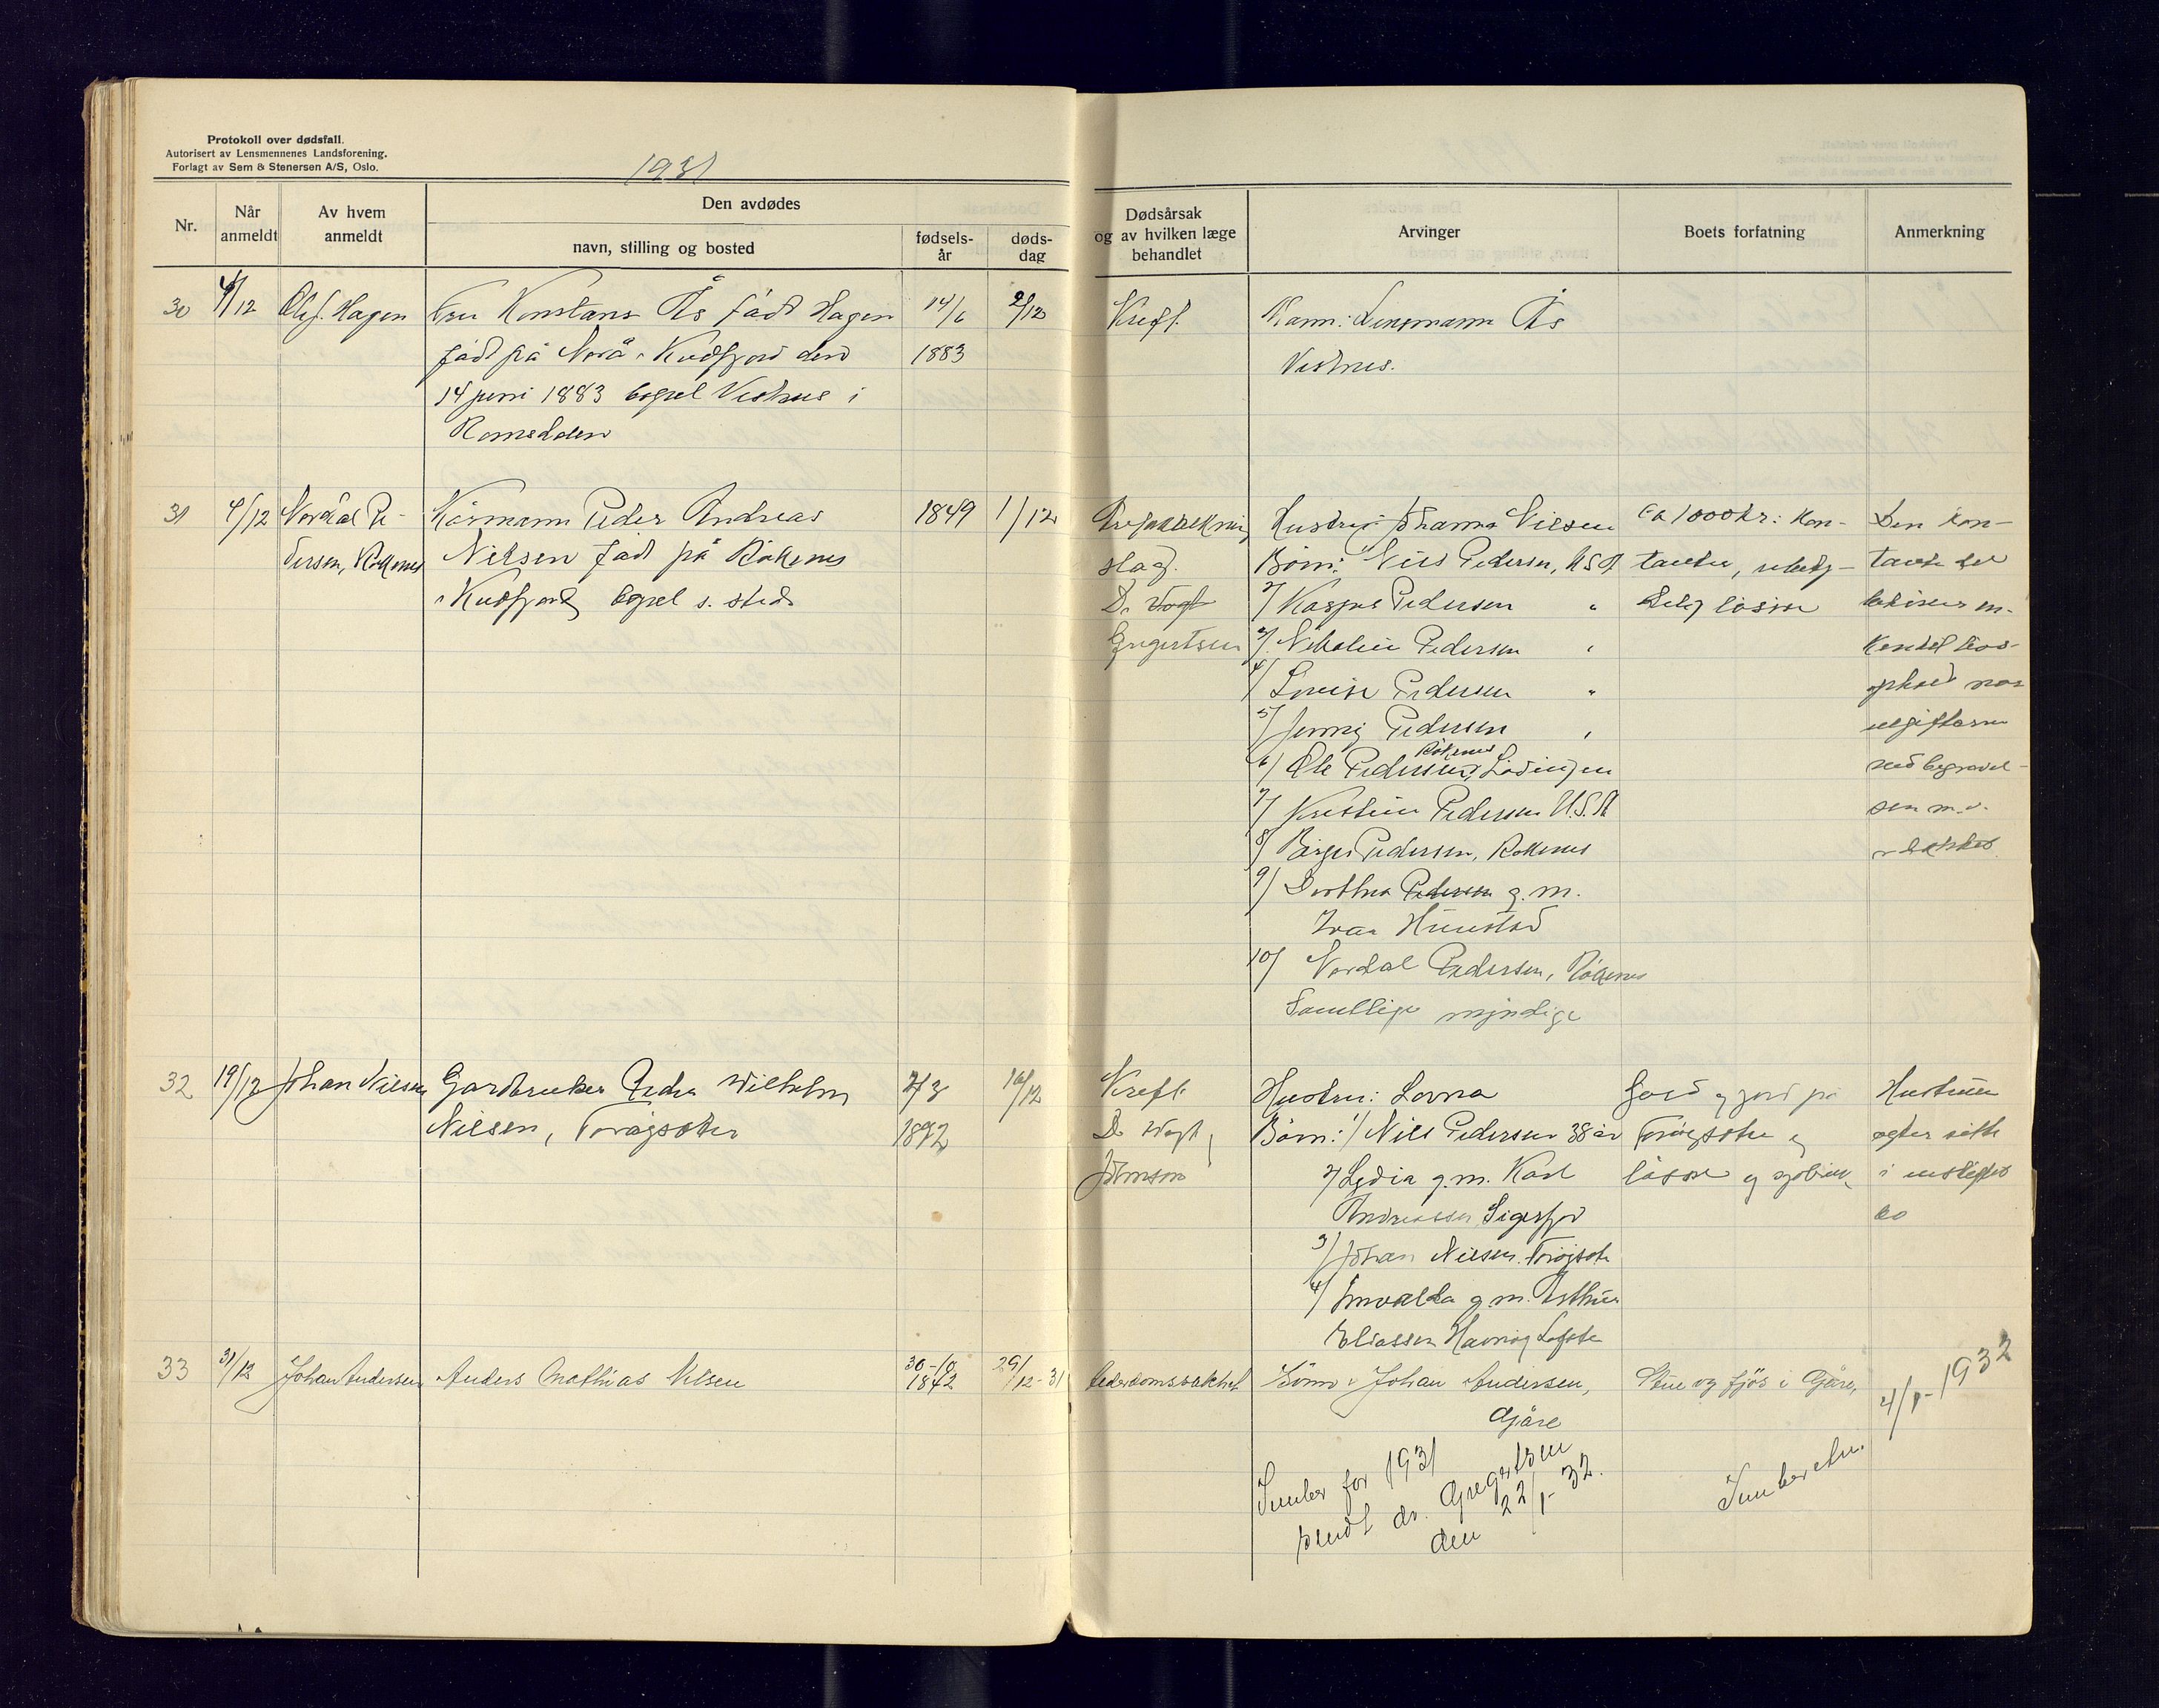 Protokoll over dødsfall.
Autorisert av Lensmennenes Landsforening.
Forlagt av Sem & Stenersen A/S, Oslo.
1931
Nr.
Når anmeldt
Av hvem anmeldt
Den avdødes
navn, stilling og bosted
fødsels-år
døds-dag
Dødsårsak og av hvilken læge behandlet
Arvinger
Boets forfatning
Anmerkning
30
4/12
Olaf Hagen
Fru Konstanse Ås född Hagen
14/6
2/12
Kreft.
Mann: Lensmann Ås
född på i Kvæfjord den
1883
Vestnes.
14 juni 1883 bopel Vestnes i
Romsdalen
31
4/12
Nordal Pe-
dersen, Røkenes
Kårmann Peder Andreas
1849
1/12
Nilsen född på Røkenes
i Kvæfjord, bopel s. steds
slag.
Dr Vogt
Gregertsen
Hustru: Johanna Nilsen
Børn: 1/ Nils Pedersen, USA
2/ Kasper Pedersen "
3/ Nikoline Pedersen "
4/ Lovise Pedersen "
5/ Jenny Pedersen "
6/ Ole Pedersen, Røkenes Lødingen
7/ Kristine Pedersen U.S.A
8/ Birger Pedersen, Røkenes
9/ Dorthea Pedersen g. m.
Ivar Hunstad
10/ Nordal Pedersen, Røkenes
Samtlige myndige
Ca 1000 kr: kon-
tanter, ubety-
delig løsøre
Den kon-
tante del
utgiftene
ved begravel-
sen m.v.
32
19/12
Johan Nilsen
Gardbruker Peder Wilhelm
16/12
Nilsen, Torågsoter
Kreft.
Dr Vogt,
Johnson
Hustru: Lovna
Børn: 1/ Nils Pedersen 38 år
2/ Lydia g. m. Karl
Andreassen Sigerfjord
3/ Johan Nilsen
4/ g. m. Arthur
Eliassen
Gard og jord på
løsøre og
Hustruen
agter sitte
i uskiftet
bo
33
31/12
Johan Andersen
Anders Mathias Nilsen
30-10
1842
29/12-31
Alderdomssvakhet
Sønn: Johan Andersen,
Gjåre
Stue og fjøs i Gjåre,
4/1-1932
for 1931
sendt dr. Gregertsen
den 22/1-32.